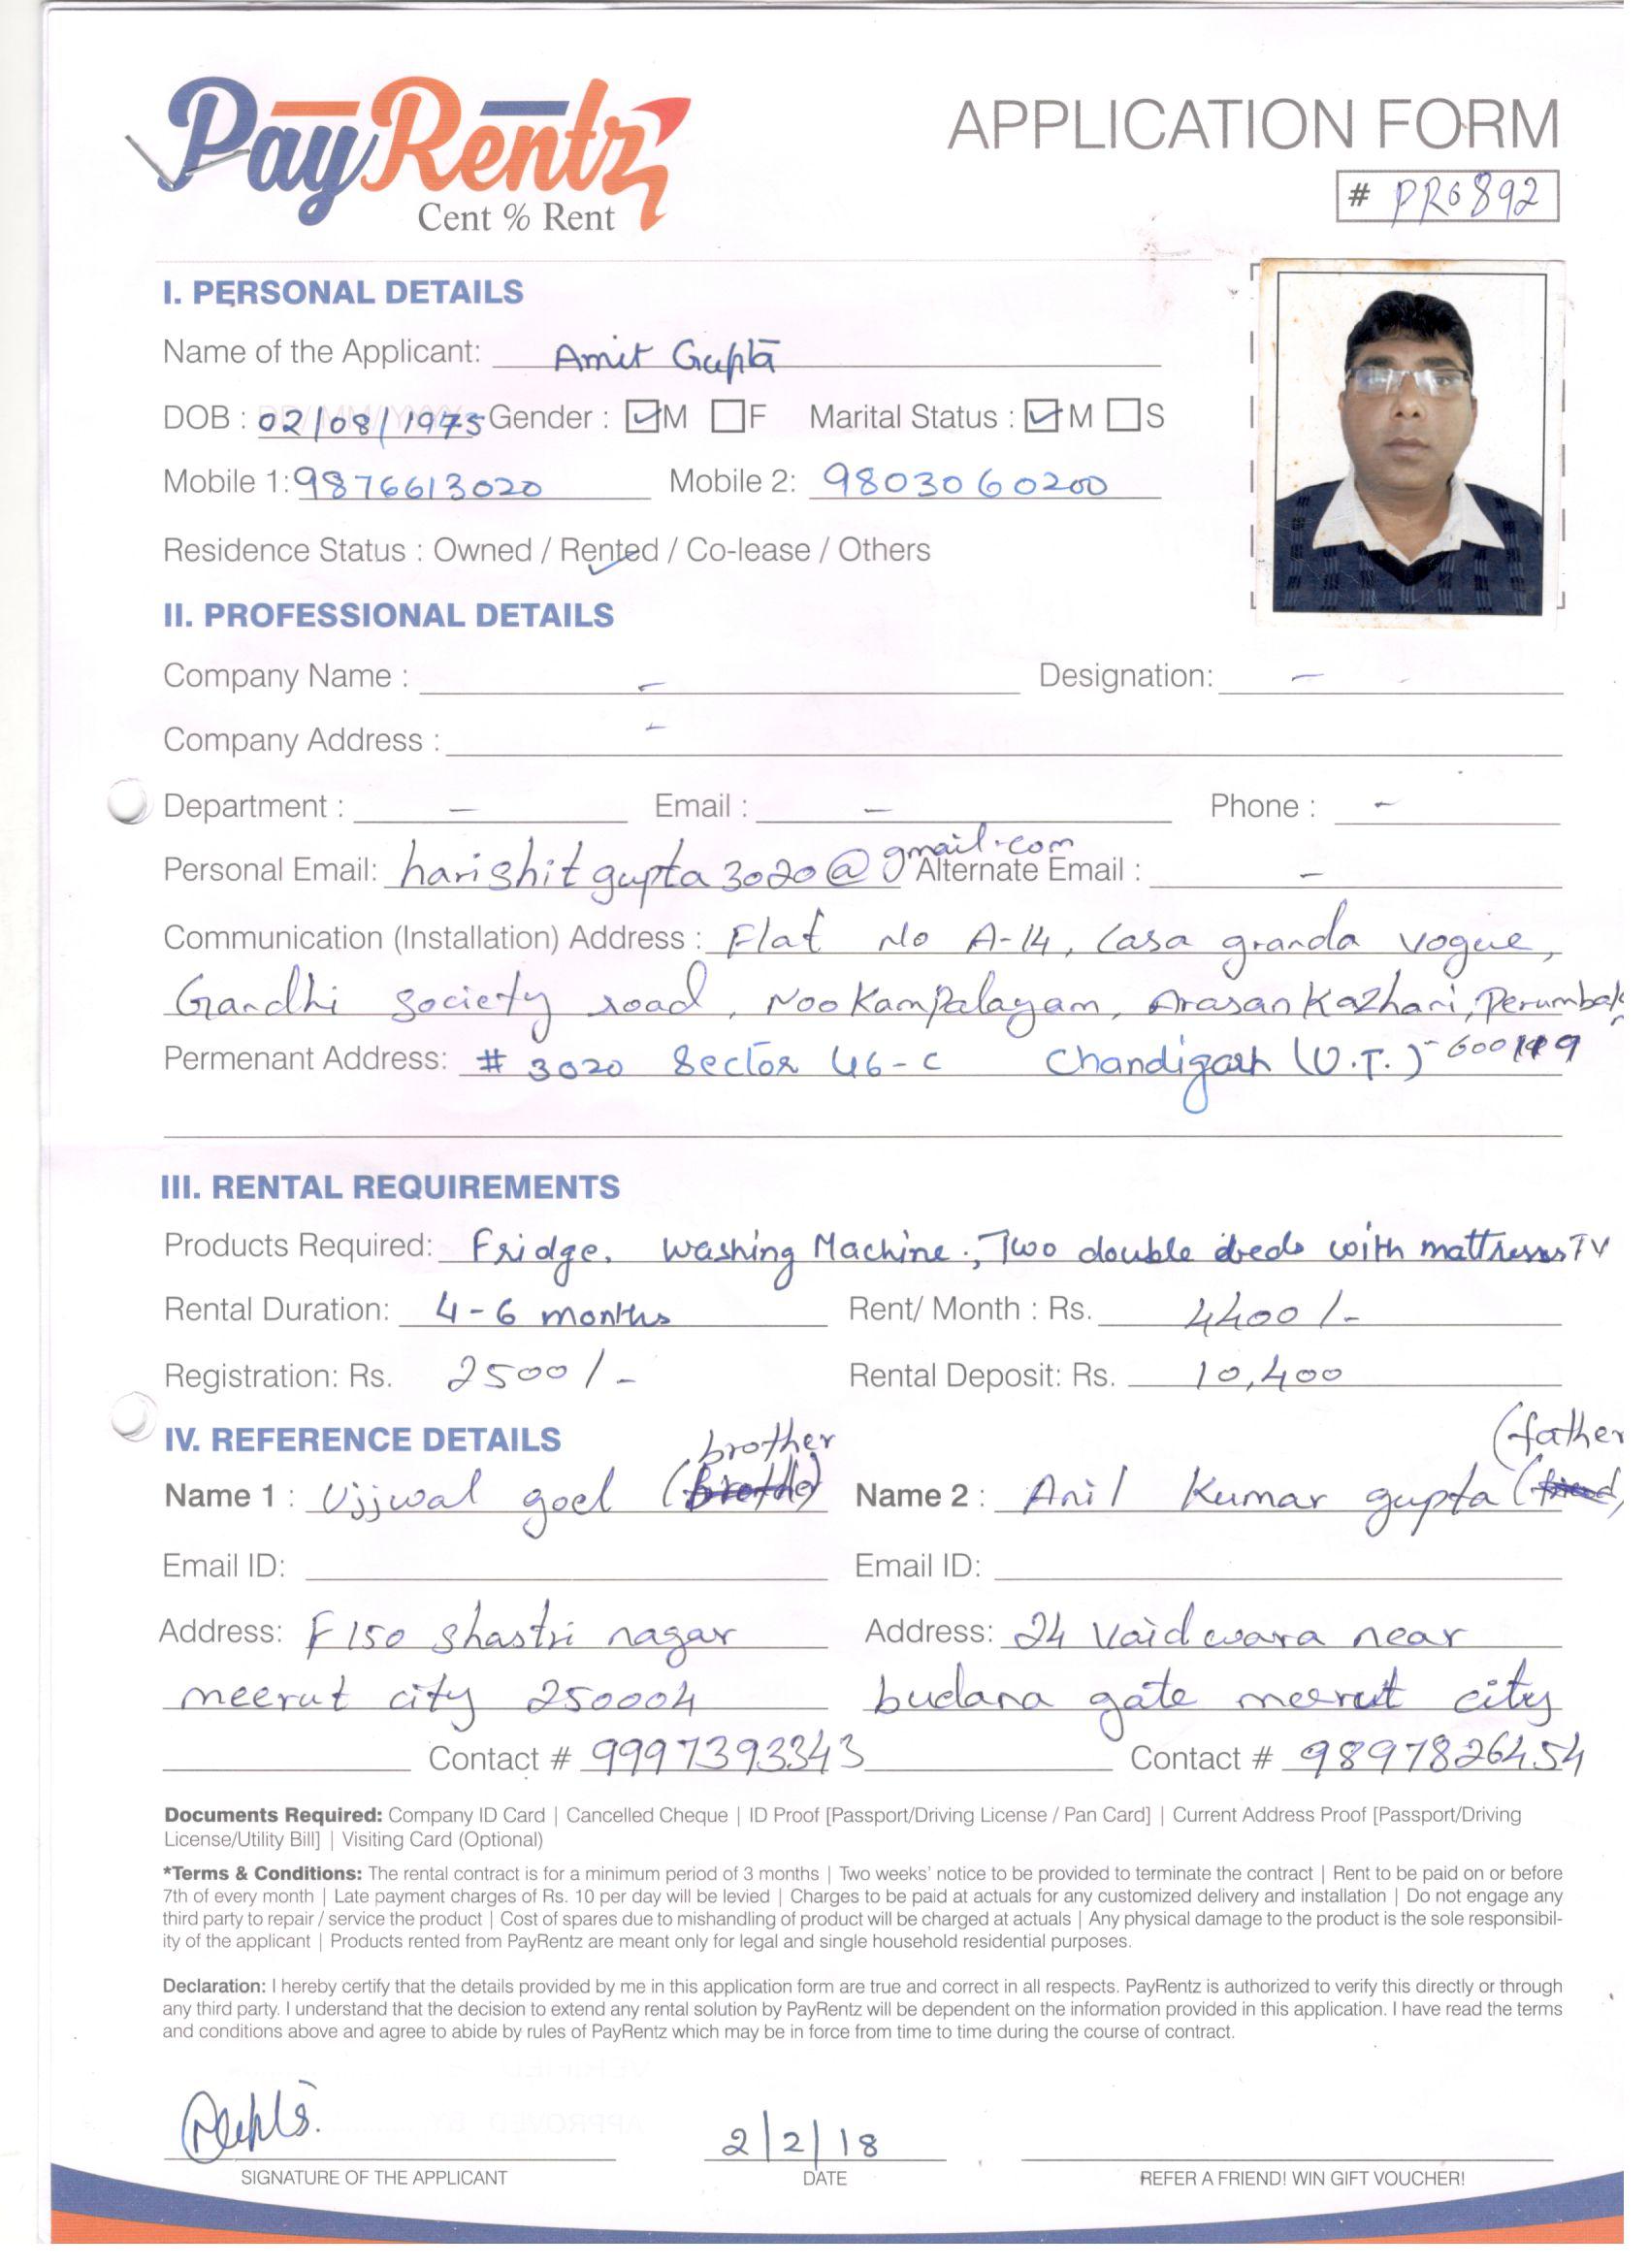 PayRentz
Cent % Rent
APPLICATION FORM
# PR6892
I. PERSONAL DETAILS
Name of the Applicant: Amit Gupta
DOB : 02/08/1975 Gender : M F Marital Status : M S
Mobile 1: 9876613020 Mobile 2: 9803060200
Residence Status : Owned / Rented / Co-lease / Others
II. PROFESSIONAL DETAILS
Company Name : - Designation: -
Company Address : -
Department : - Email : - Phone : -
Personal Email: harishitgupta3020@gmail.com Alternate Email : -
Communication (Installation) Address : Flat No A-14, Casa granda vogue,
Gandhi society road, Nookampalayam, Arasankazhani, Perumbak
Permenant Address: # 3020 Sector 46-C Chandigarh (U.T.) - 600119
III. RENTAL REQUIREMENTS
Products Required: Fridge, Washing Machine, Two double beds with mattresses TV
Rental Duration: 4-6 months Rent/ Month : Rs. 4400/-
Registration: Rs. 2500/- Rental Deposit: Rs. 10,400
IV. REFERENCE DETAILS
Name 1 : Ujjwal goel (brother) Name 2 : Anil Kumar gupta (father
Email ID: Email ID:
Address: F150 shastri nagar Address: 24 Vaidwara near
meerut city 250004 budana gate meerut city
Contact # 9997393343 Contact # 9897826454
Documents Required: Company ID Card | Cancelled Cheque | ID Proof [Passport/Driving License / Pan Card] | Current Address Proof [Passport/Driving
License/Utility Bill] | Visiting Card (Optional)
*Terms & Conditions: The rental contract is for a minimum period of 3 months | Two weeks' notice to be provided to terminate the contract | Rent to be paid on or before
7th of every month | Late payment charges of Rs. 10 per day will be levied | Charges to be paid at actuals for any customized delivery and installation | Do not engage any
third party to repair / service the product | Cost of spares due to mishandling of product will be charged at actuals | Any physical damage to the product is the sole responsibil-
ity of the applicant | Products rented from PayRentz are meant only for legal and single household residential purposes.
Declaration: I hereby certify that the details provided by me in this application form are true and correct in all respects. PayRentz is authorized to verify this directly or through
any third party. I understand that the decision to extend any rental solution by PayRentz will be dependent on the information provided in this application. I have read the terms
and conditions above and agree to abide by rules of PayRentz which may be in force from time to time during the course of contract.
2/2/18
SIGNATURE OF THE APPLICANT DATE REFER A FRIEND! WIN GIFT VOUCHER!